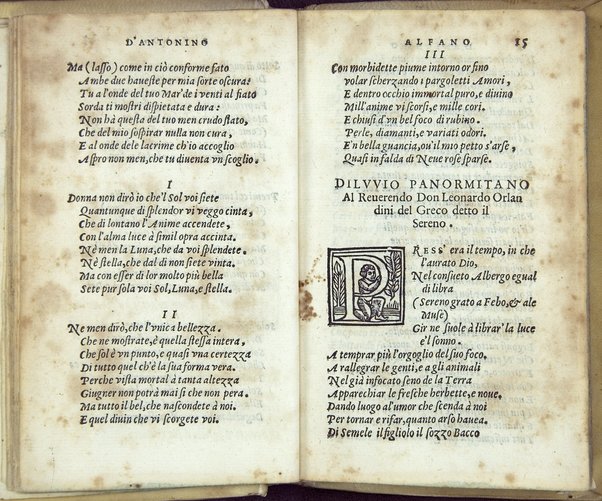 D'ANTONINO
Ma (lasso) come in ciò conforme fato
Ambe due haueste per mia sorte oscura?
Tu a l'onde del tuo Mar'de i venti al fiato
Sorda ti mostri dispietata e dura:
Non hà questa del tuo men crudo stato,
Che del mio sospirar nulla non cura,
E al onde dele lacrime ch'io accoglio
Aspro non men, che tu diuenta vn scoglio.
I
Donna non dirò io che'l Sol voi siete
Quantunque di splendor vi veggo cinta,
Che di lontano l'Anime accendete,
Con l'alma luce à simil opra accinta.
Nè men la Luna, che da voi splendete.
Nè stella, che dal dì non siete vinta.
Ma con esser di lor molto più bella
Sete pur sola voi Sol, Luna, e stella.
II
Ne men dirò, che l'vnic a bellezza.
Che ne mostrate, è quella stessa intera,
Che sol è vn punto, e quasi vna certezza
Di tutto quel ch'è la sua forma vera.
Perche vista mortal à tanta altezza
Giugner non potrà mai sì che non pera.
Ma tutto il bel, che nascondete à noi.
E quel diuin che vi scorgete voi.
ALFANO 85
III
Con morbidette piume intorno or sino
volar scherzando i pargoletti Amori,
E dentro occhio immortal puro, e diuino
Mill'anime vi scorsi, e mille cori.
E chiusi d'vn bel foco di rubino.
Perle, diamanti, e variati odori.
E'n bella guancia, ou'il mio petto s'arse,
Quasi in falda di Neue rose sparse.
DILVVIO PANORMITANO
Al Reuerendo Don Leonardo Orlan
dini del Greco detto il
Sereno.
PRESS' era il tempo, in che
l'aurato Dio,
Nel consueto Albergo egual
di libra
(Sereno grato a Febo, & ale
Muse)
Gir ne suole à librar' la luce
e'l sonno.
A temprar più l'orgoglio del suo foco.
A rallegrar le genti, e a gli animali
Nel già infocato seno de la Terra
Apparechiar le fresche herbette, e noue.
Dando luogo al'umor che scenda à noi
Per tornar e rifar, quanto arso hauea.
Di Semele il figliolo il sozzo Bacco